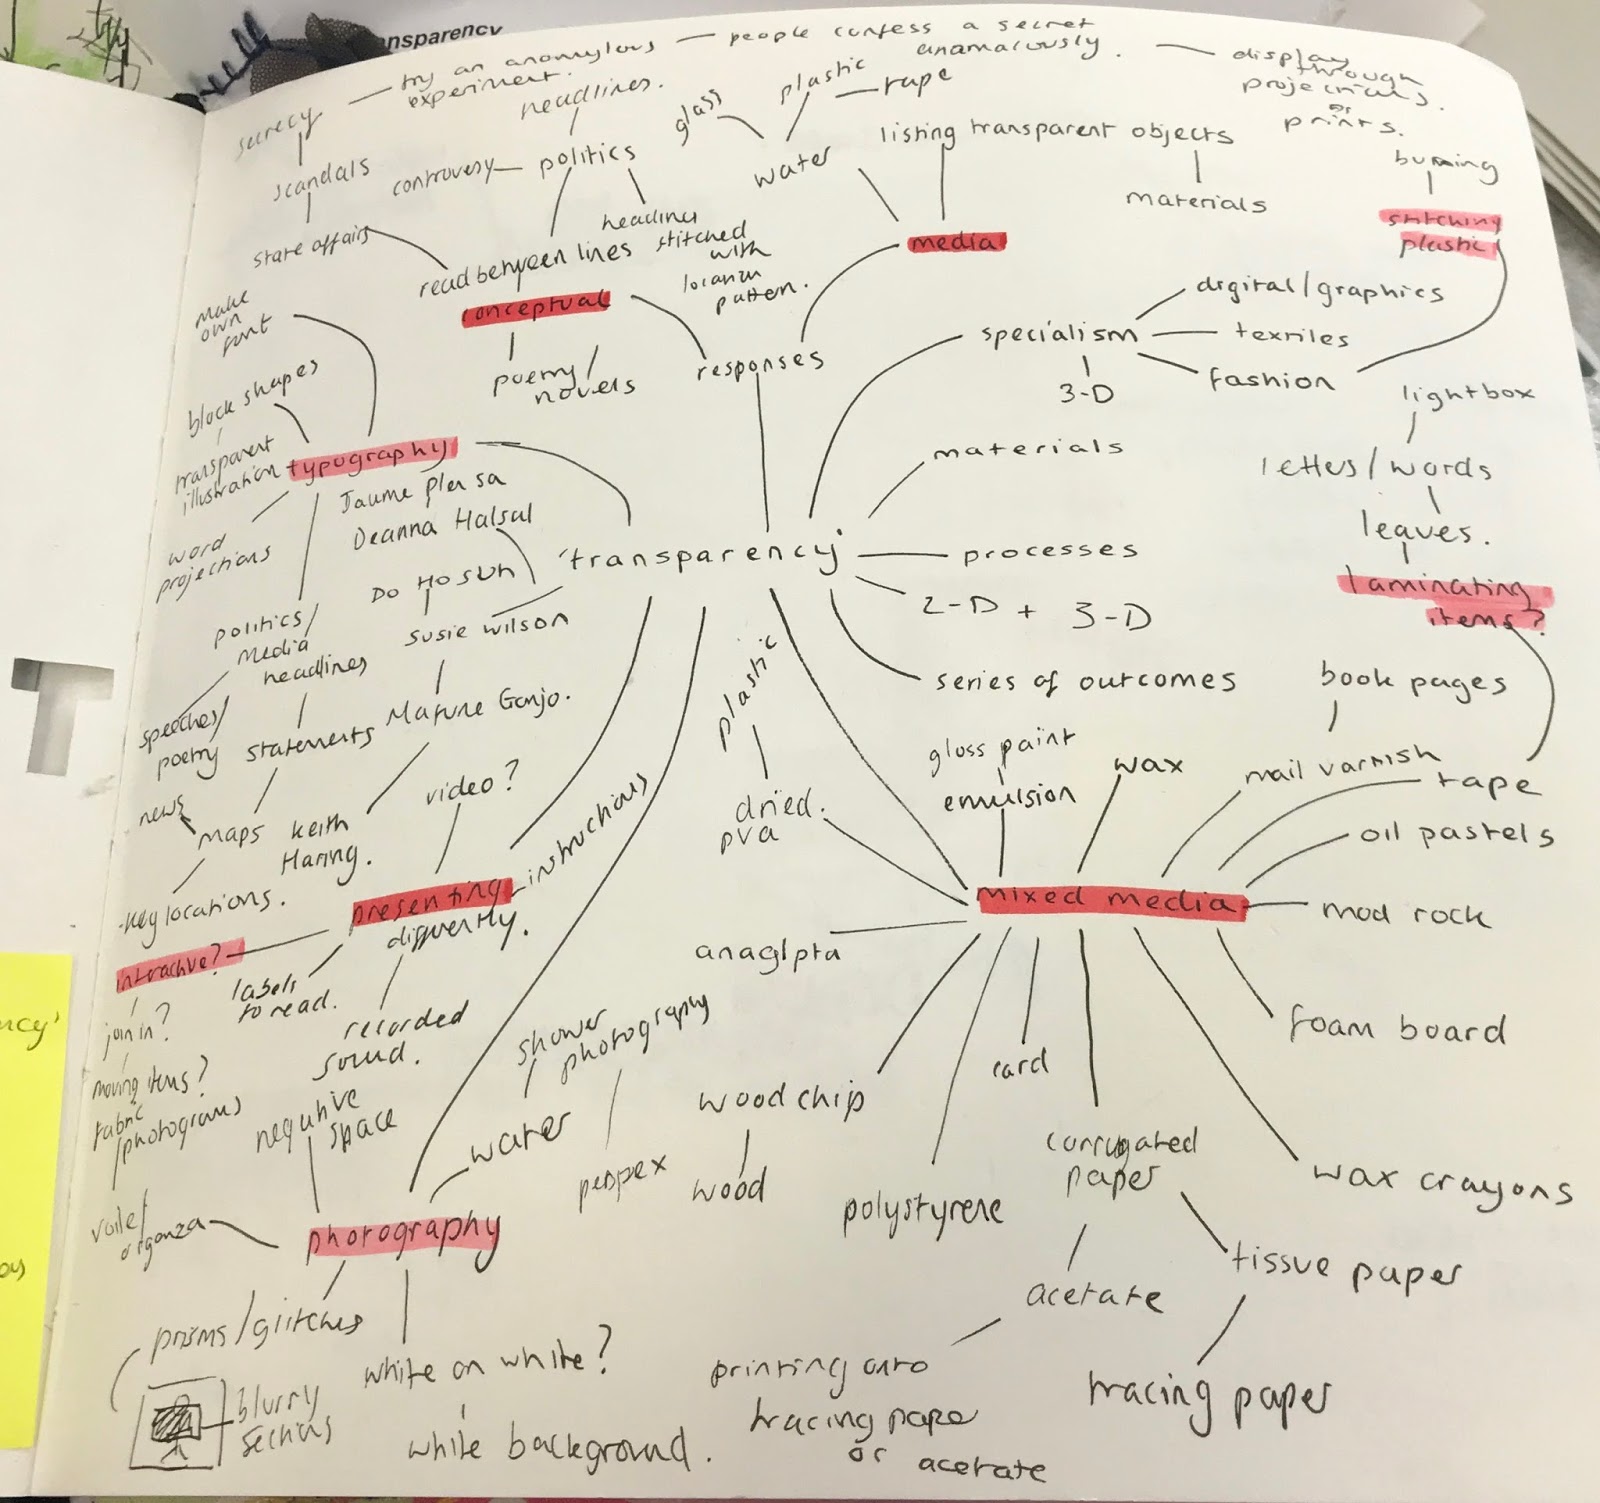 ansparency
secrecy
try an anomylous
experiment.
people confess a secret
anamalously.
display
through
projections.
or
prints.
scandals
state affairs
headlines.
controversy
politics
read between lines
headlines
stitched
with
pattern.
conceptual
poetry/
novels
responses
glass
plastic
tape
water
listing transparent objects
materials
media
burning
stitching
plastic
specialism
digital/graphics
textiles
fashion
3-D
lightbox
letters/words
leaves.
laminating
items?
make
own
font
block shapes
transparent
illustration
typography
word
projections
politics/
media
headlines
speeches/
poetry
statements
news
maps
key locations.
Jaume Plensa
Deanna Halsul
Do Ho Suh
susie wilson
Keith
Haring.
'transparency'
materials
processes
2-D + 3-D
series of outcomes
video?
presenting
differently.
instructions
interactive?
join in?
moving items?
fabric
/photograms
labels
to read.
recorded
sound.
plastic
dried.
pva
gloss paint
emulsion
wax
book pages
nail varnish
tape
oil pastels
mixed media
mod rock
foam board
wax crayons
anaglpta
woodchip
wood
polystyrene
card
corrugated
paper
tissue paper
tracing paper
acetate
printing onto
tracing pape
or acetate
negative
space
shower
photography
water
perspex
photography
organza
prisms/glitches
blurry
sections
white on white?
white background.
T
ncy'